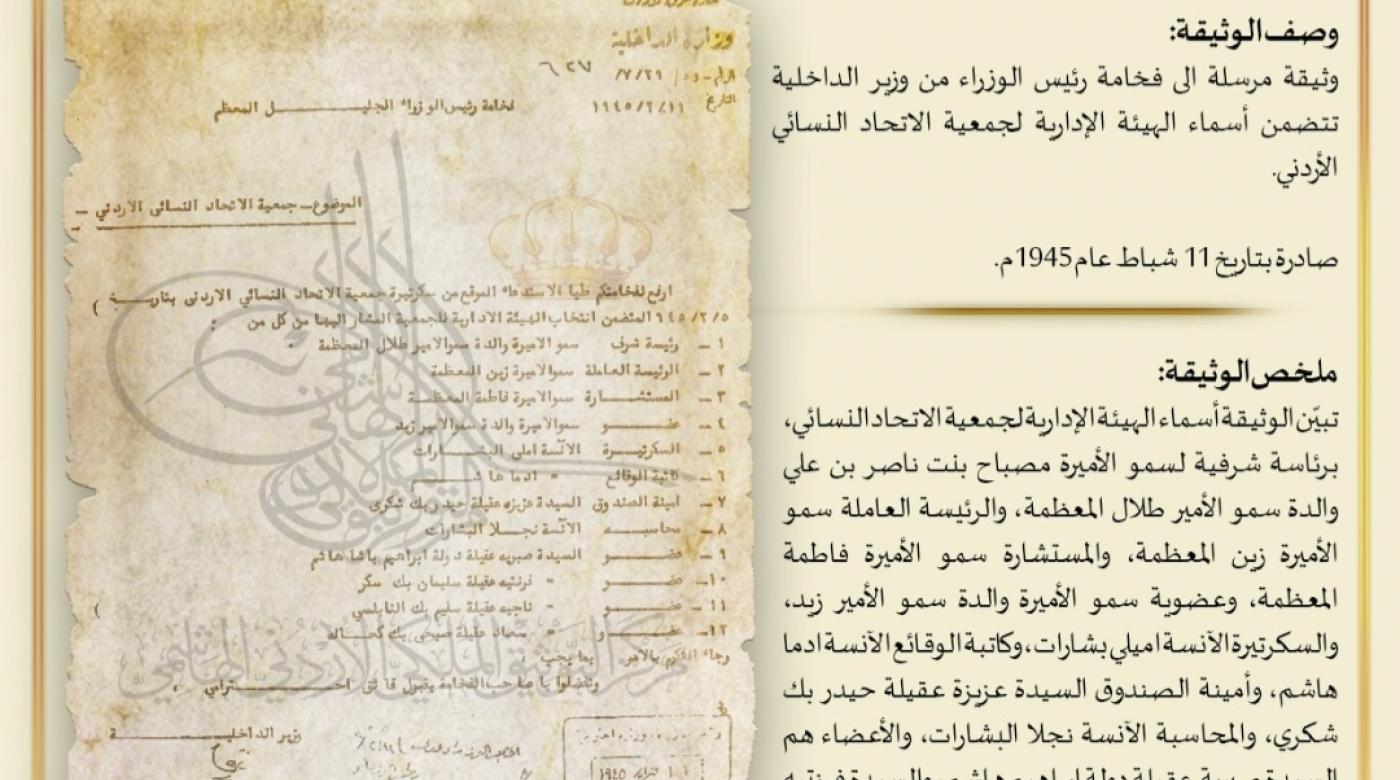 وصف الوثيقة:
وثيقة مرسلة الى فخامة رئيس الوزراء من وزير الداخلية
تتضمن أسماء الهيئة الإدارية لجمعية الاتحاد النسائي
الأردني.
صادرة بتاريخ 11 شباط عام 1945م.
ملخص الوثيقة:
تبيّن الوثيقة أسماء الهيئة الإدارية لجمعية الاتحاد النسائي،
برئاسة شرفية لسمو الأميرة مصباح بنت ناصر بن علي
والدة سمو الأمير طلال المعظمة، والرئيسة العاملة سمو
الأميرة زين المعظمة، والمستشارة سمو الأميرة فاطمة
المعظمة، وعضوية سمو الأميرة والدة سمو الأمير زيد،
والسكرتيرة الآنسة اميلي بشارات، وكاتبة الوقائع الآنسة ادما
هاشم، وأمينة الصندوق السيدة عزيزة عقيلة حيدر بك
شكري، والمحاسبة الآنسة نجلا البشارات، والأعضاء هم
وزارة الداخلية
الرقم ٧/٢٩/ ٦٢٧
التاريخ ١٩٤٥/٢/١١
فخامة رئيس الوزراء الجليل المعظم
الموضوع ـ جمعية الاتحاد النسائي الاردني ـ
ارفع لفخامتكم طيا الاستدعاء الموقع من سكرتيرة جمعية الاتحاد النسائي الاردني بتاريخ
٩٤٥/٢/٥ المتضمن انتخاب الهيئة الادارية للجمعية المشار اليها من كل من :
١ ـ رئيسة شرف سمو الاميرة والدة سمو الامير طلال المعظمة
٢ ـ الرئيسة العاملة سمو الاميرة زين المعظمة
٣ ـ المستشارة سمو الاميرة فاطمة المعظمة
٤ ـ عضو سمو الاميرة والدة سمو الامير زيد
٥ ـ السكرتيرة الآنسة املي البشارات
٦ ـ كاتبة الوقائع " ادما هاشم
٧ ـ امينة الصندوق السيدة عزيزه عقيلة حيدر بك شكري
٨ ـ محاسبه الآنسة نجلا البشارات
٩ ـ عضو السيدة صبريه عقيلة دولة ابراهيم باشا هاشم
١٠ـ عضو " عقيلة سليمان بك سكر
١١ ـ عضو " ناجيه عقيلة سليم بك النابلسي
١٢ـ عضو " سعاد عقيلة صبحي بك كحاله
رجاء التكرم بالامر بما يجب
وتفضلوا يا صاحب الفخامة بقبول فائق احترامي ،
وزير الداخلية
١١ ١٩٤٥
مركز التوثيق الملكي الأردني الهاشمي